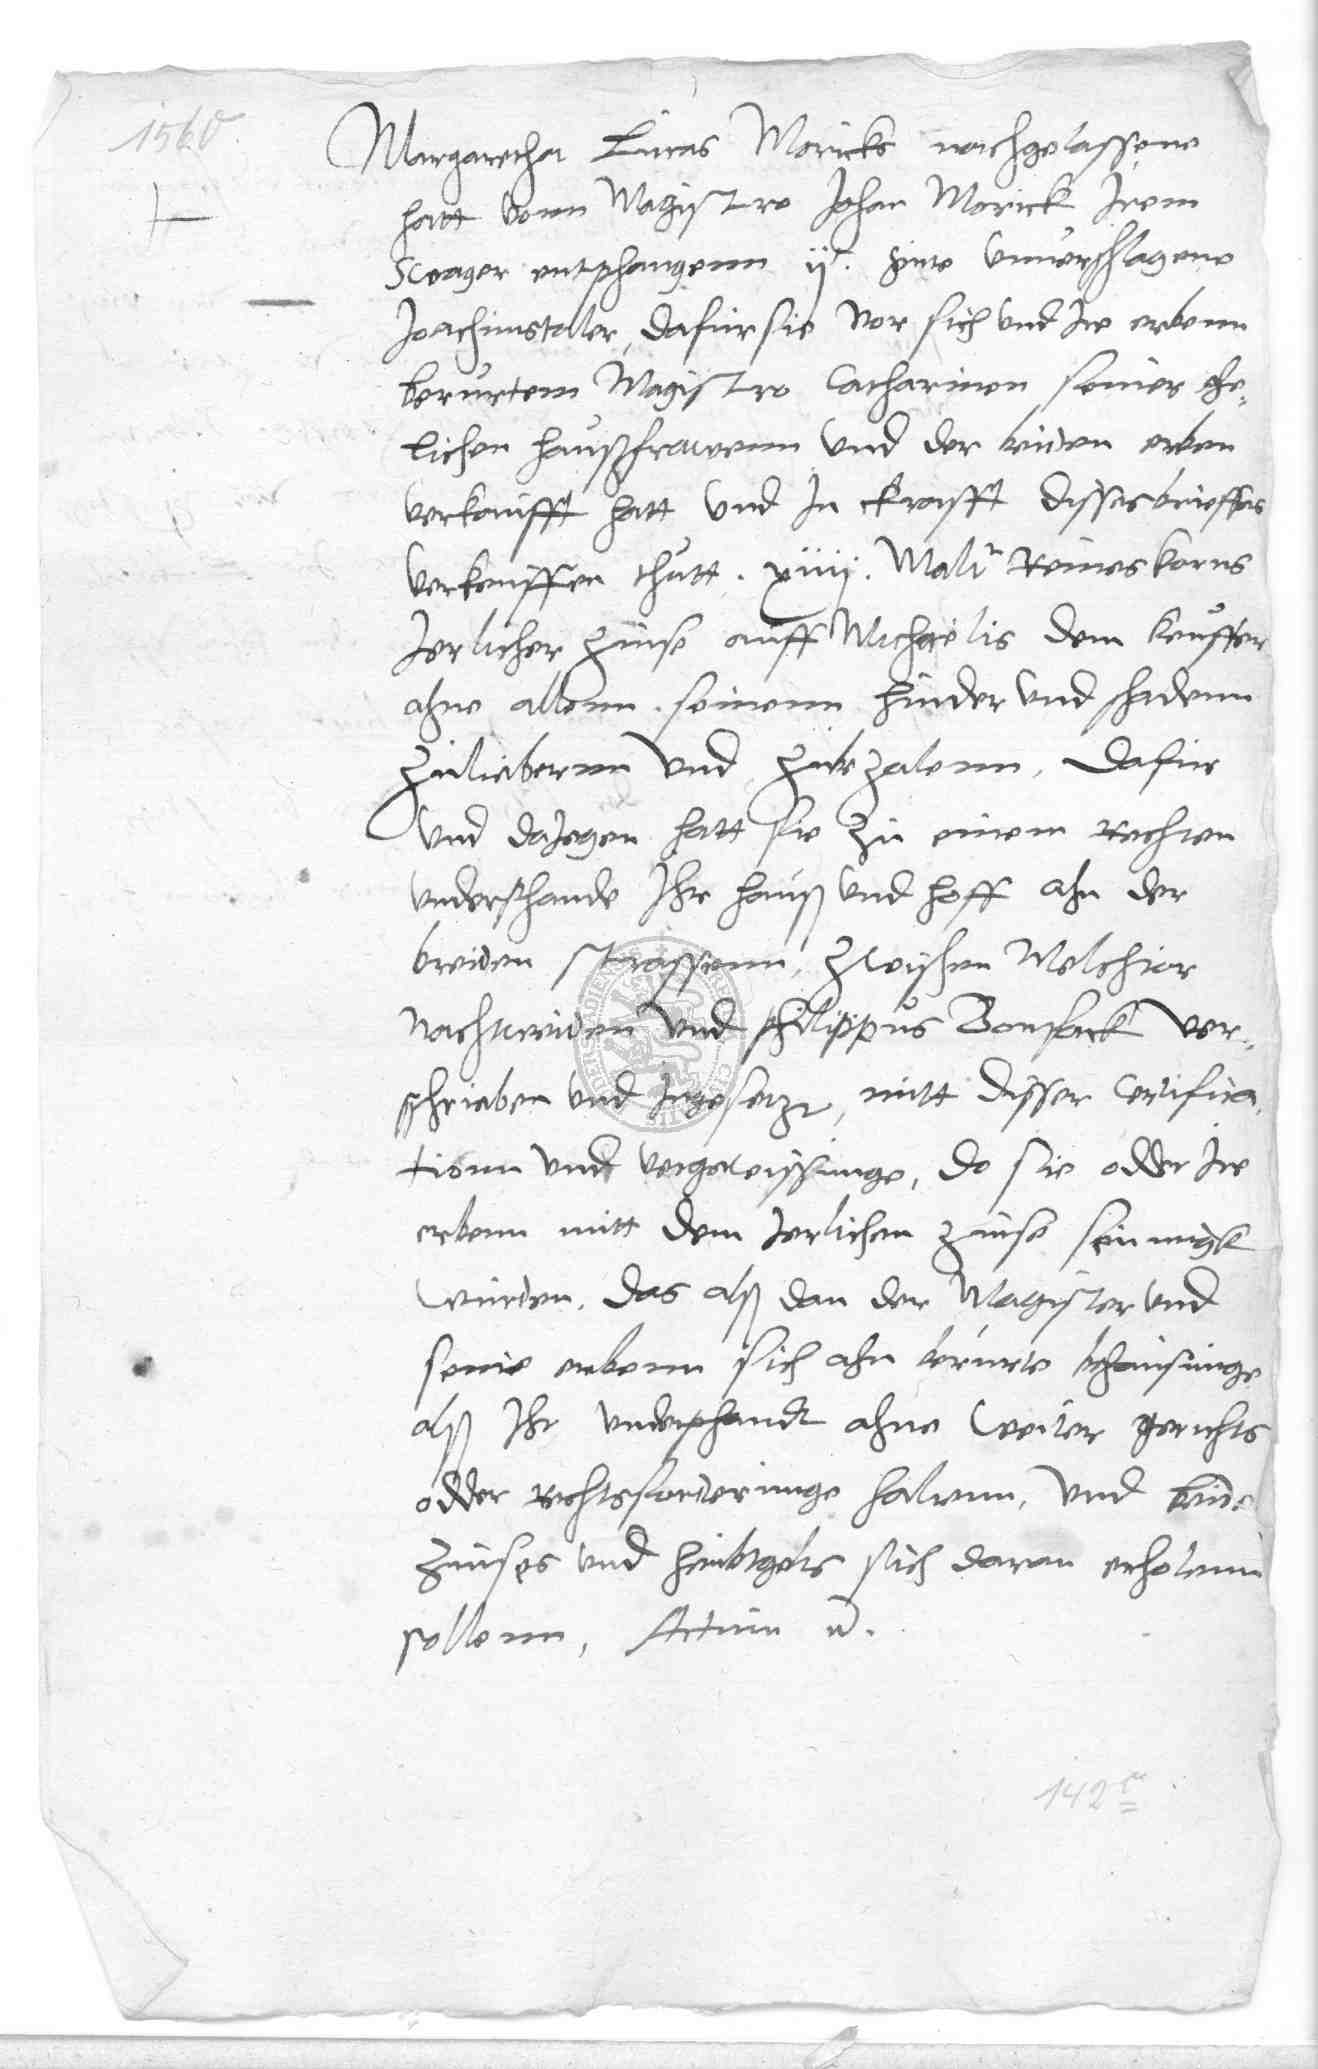 1560.
Margaretha Lucas Moricks nachgelassene
hatt vonn Magistro Johan Morick Irem
Swager entphangenn ijc. gute vnuerschlagene
Joachimstaler, dafur sie vor sich vnd Ire erbenn
berurtem Magistro Catharinen seiner ehe-
lichen haußfrawenn vnd der beiden erben
verkaufft hatt vnd In Krafft disses brieffes
verkauffen thutt. xiiij. Maldr Reines korns
Jerlicher Zinse auff Michaelis dem keuffer
ahne allenn seinenn hinder vnd schadenn
Zuliebernn vnd Zubezalenn, Dafur
vnd dajegen hatt sie Zu einem Rechten
vnderphande Ihr hauß vnd hoff ahn der
breiden strassenn, Zwischen Melchior
Nachtweiden vnd philippus Bonsack ver-
schrieben vnd Ingesetzt, mitt disser Certifica-
tionn vnd vergewissunge, do sie odder Ire
erbenn mitt dem Jerlichen Zinse seumigk
wurden, das alß dan der Magister vnd
seine erbenn sich ahn berurte behausunge
alß Ihr vnderphandt ahne weiter gerichts
odder Rechtsforderunge haltenn, vnd beide
Zinses vnd heubtgelts sich daran erholenn
sollenn, Actum u.
142 r